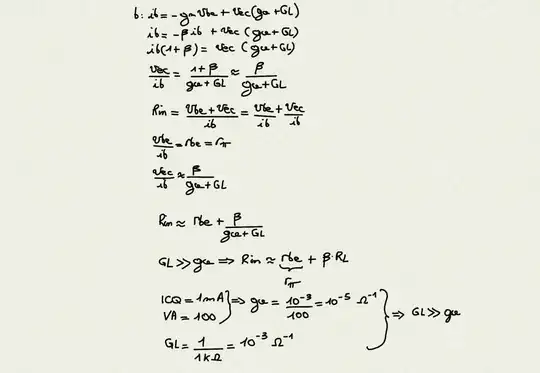 b: ib = -gm vbe + vec (gce + GL)
ib = -β ib + vec (gce + GL)
ib(1 + β) = vec (gce + GL)
vec/ib = (1 + β)/(gce + GL) ≈ β/(gce + GL)
Rin = (vbe + vec)/ib = vbe/ib + vec/ib
vbe/ib = rbe = rπ
vec/ib ≈ β/(gce + GL)
Rin ≈ rbe + β/(gce + GL)
GL >> gce ⇒ Rin ≈ rbe + β·RL
rπ
ICQ = 1mA
VA = 100 } ⇒ gce = 10^-3/100 = 10^-5 Ω^-1
GL = 1/1kΩ = 10^-3 Ω^-1 } ⇒ GL >> gce